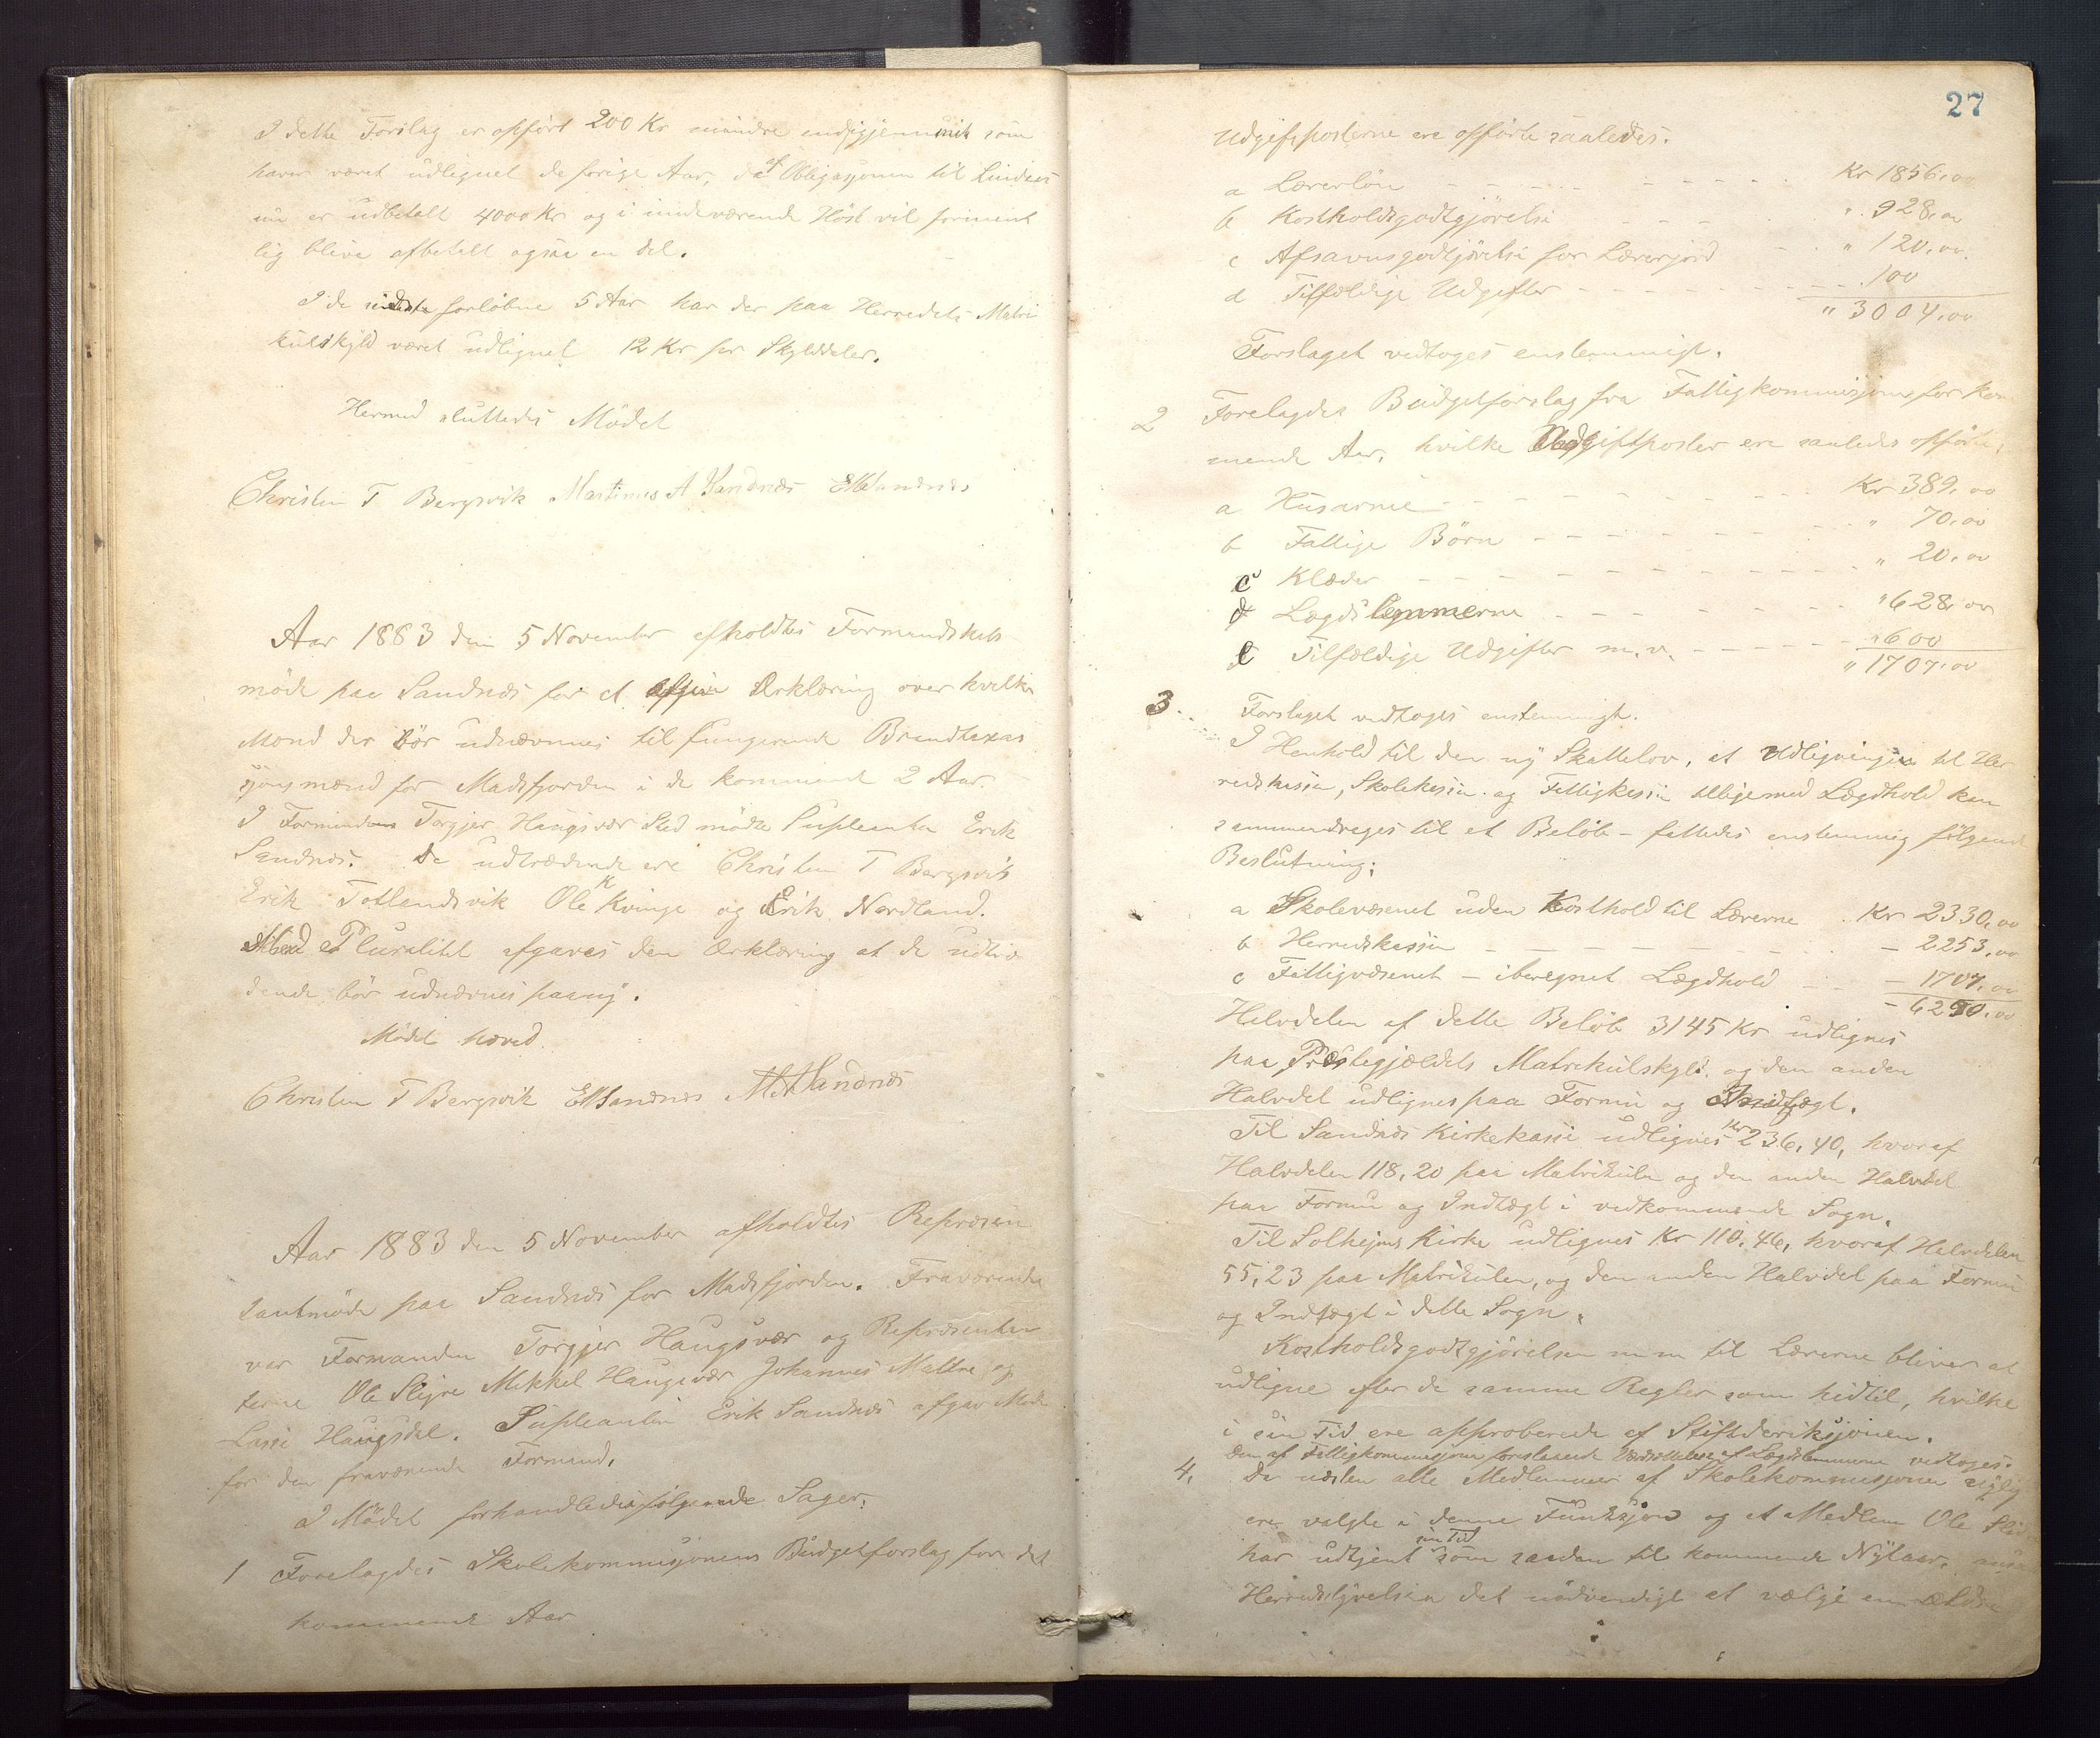 I dette Forslag er opført 200 Kr mindre end som
haver været udlignet de forige Aar, da af Obligasjonen til Lindaas
nu er udbetalt 4000 Kr og i indeværende Høst vil forment
lig blive afbetalt ogsaa en del.
I de sidste forløbne 5 Aar har der paa Herredets Matri
kulskyld været udlignet 12 Kr per Skylddaler.
Hermed sluttedes Mødet
Christen T Bergsvik Martinus A Sandnæs E Sandnæs
Aar 1883 den 5 November afholdtes Formandskabs
møde paa Sandnæs for at afgive Erklæring over hvilke
Mænd der bør udnævnes til fungerende Brandtaxas
sjonsmænd for Madsfjorden i de kommende 2 Aar.
I Formanden Torgjer Haugsvær Sted mødte Supleanten Erik
Sandnæs. De udtrædende ere Christen T Bergsvik
Erik Totlandsvik Ole K Kvinge og Erik Nordland.
Med Pluralitet afgaves den Erklæring at de udtræ
dende bør udnævnes paany.
Mødet hævet.
Christen T Bergsvik E Sandnæs M A Sandnæs
Aar 1883 den 5 November afholdtes Repræsen
tantmøde paa Sandnæs for Madsfjorden. Fraværende
var Formanden Torgjer Haugsvær og Repræsentan
terne Ole Slejre Mikkel Haugsvær Johannes Mattre og
Lasse Haugsdal. Supleanten Erik Sandnæs afgav Møde
for den fraværende Formand.
I Mødet forhandledes følgende Sager.
1 Forelagdes Skolekommisjonens Budgetforslag for det
kommende Aar
27
Udgiftsposterne ere opførte saaledes.
a Lærerløn Kr 1856,00
b Kostholdsgodtgjørelse " 928,00
c Afsavnsgodtgjørelse for Lærerjord " 120,00.
d Tilfældige Udgifter 100
" 3004,00
Forslaget vedtoges enstemmigt.
2 Forelagdes Budgetforslag fra Fattigkommisjonen for kom
mende Aar, hvilke Udgiftposter ere saaledes opførte,
a Husarme Kr 389,00
b Fattige Børn " 70,00
c Klæder " 20,00
d Lægdslemmerne " 628,00
e Tilfældige Udgifter m.v. " 600
" 1707,00
Forslaget vedtoges enstemmigt.
3. I Henhold til den ny Skattelov, at Udligningen til Her
redskassen, Skolekassen og Fattigkassen tilligemed Lægdhold kan
sammendrages til et Beløb – fattedes enstemmig følgende
Beslutning;
a Skolevæsenet uden Kosthold til Lærerne Kr 2330,00
b Herredskassen – 2253,00
c Fattigvæsenet – iberegnet Lægdhold – 1707,00
– 6290,00
Halvdelen af dette Beløb 3145 Kr udlignes
paa Præstegjældets Matrikulskyld og den anden
Halvdel udlignes paa Formue og Indtægt.
Til Sandnæs Kirkekasse udlignes Kr 236,40, hvoraf
Halvdelen 118,20 paa Matrikulen og den anden Halvdel
paa Formue og Indtægt i vedkommende Sogn.
Til Solhejms Kirke udlignes Kr 110,46, hvoraf Halvdelen
55,23 paa Matrikulen, og den anden Halvdel paa Formue
og Indtægt i dette Sogn.
Kostholdsgodtgjørelsen m m til Lærerne bliver at
udligne efter de samme Regler som hidtil, hvilke
i sin Tid ere approberede af Stiftsdireksjonen.
Den af Fattigkommisjonen foreslaaede Værdsættelse af Lægdslemmerne vedtoges.
4. Da næsten alle Medlemmer af Skolekommisjonen
ere valgte i denne Funksjon og at Medlem Ole
har udtjent sin Tid som saadan til kommende Nytaar,
Herredstyrelsen det nødvendigt at vælge en